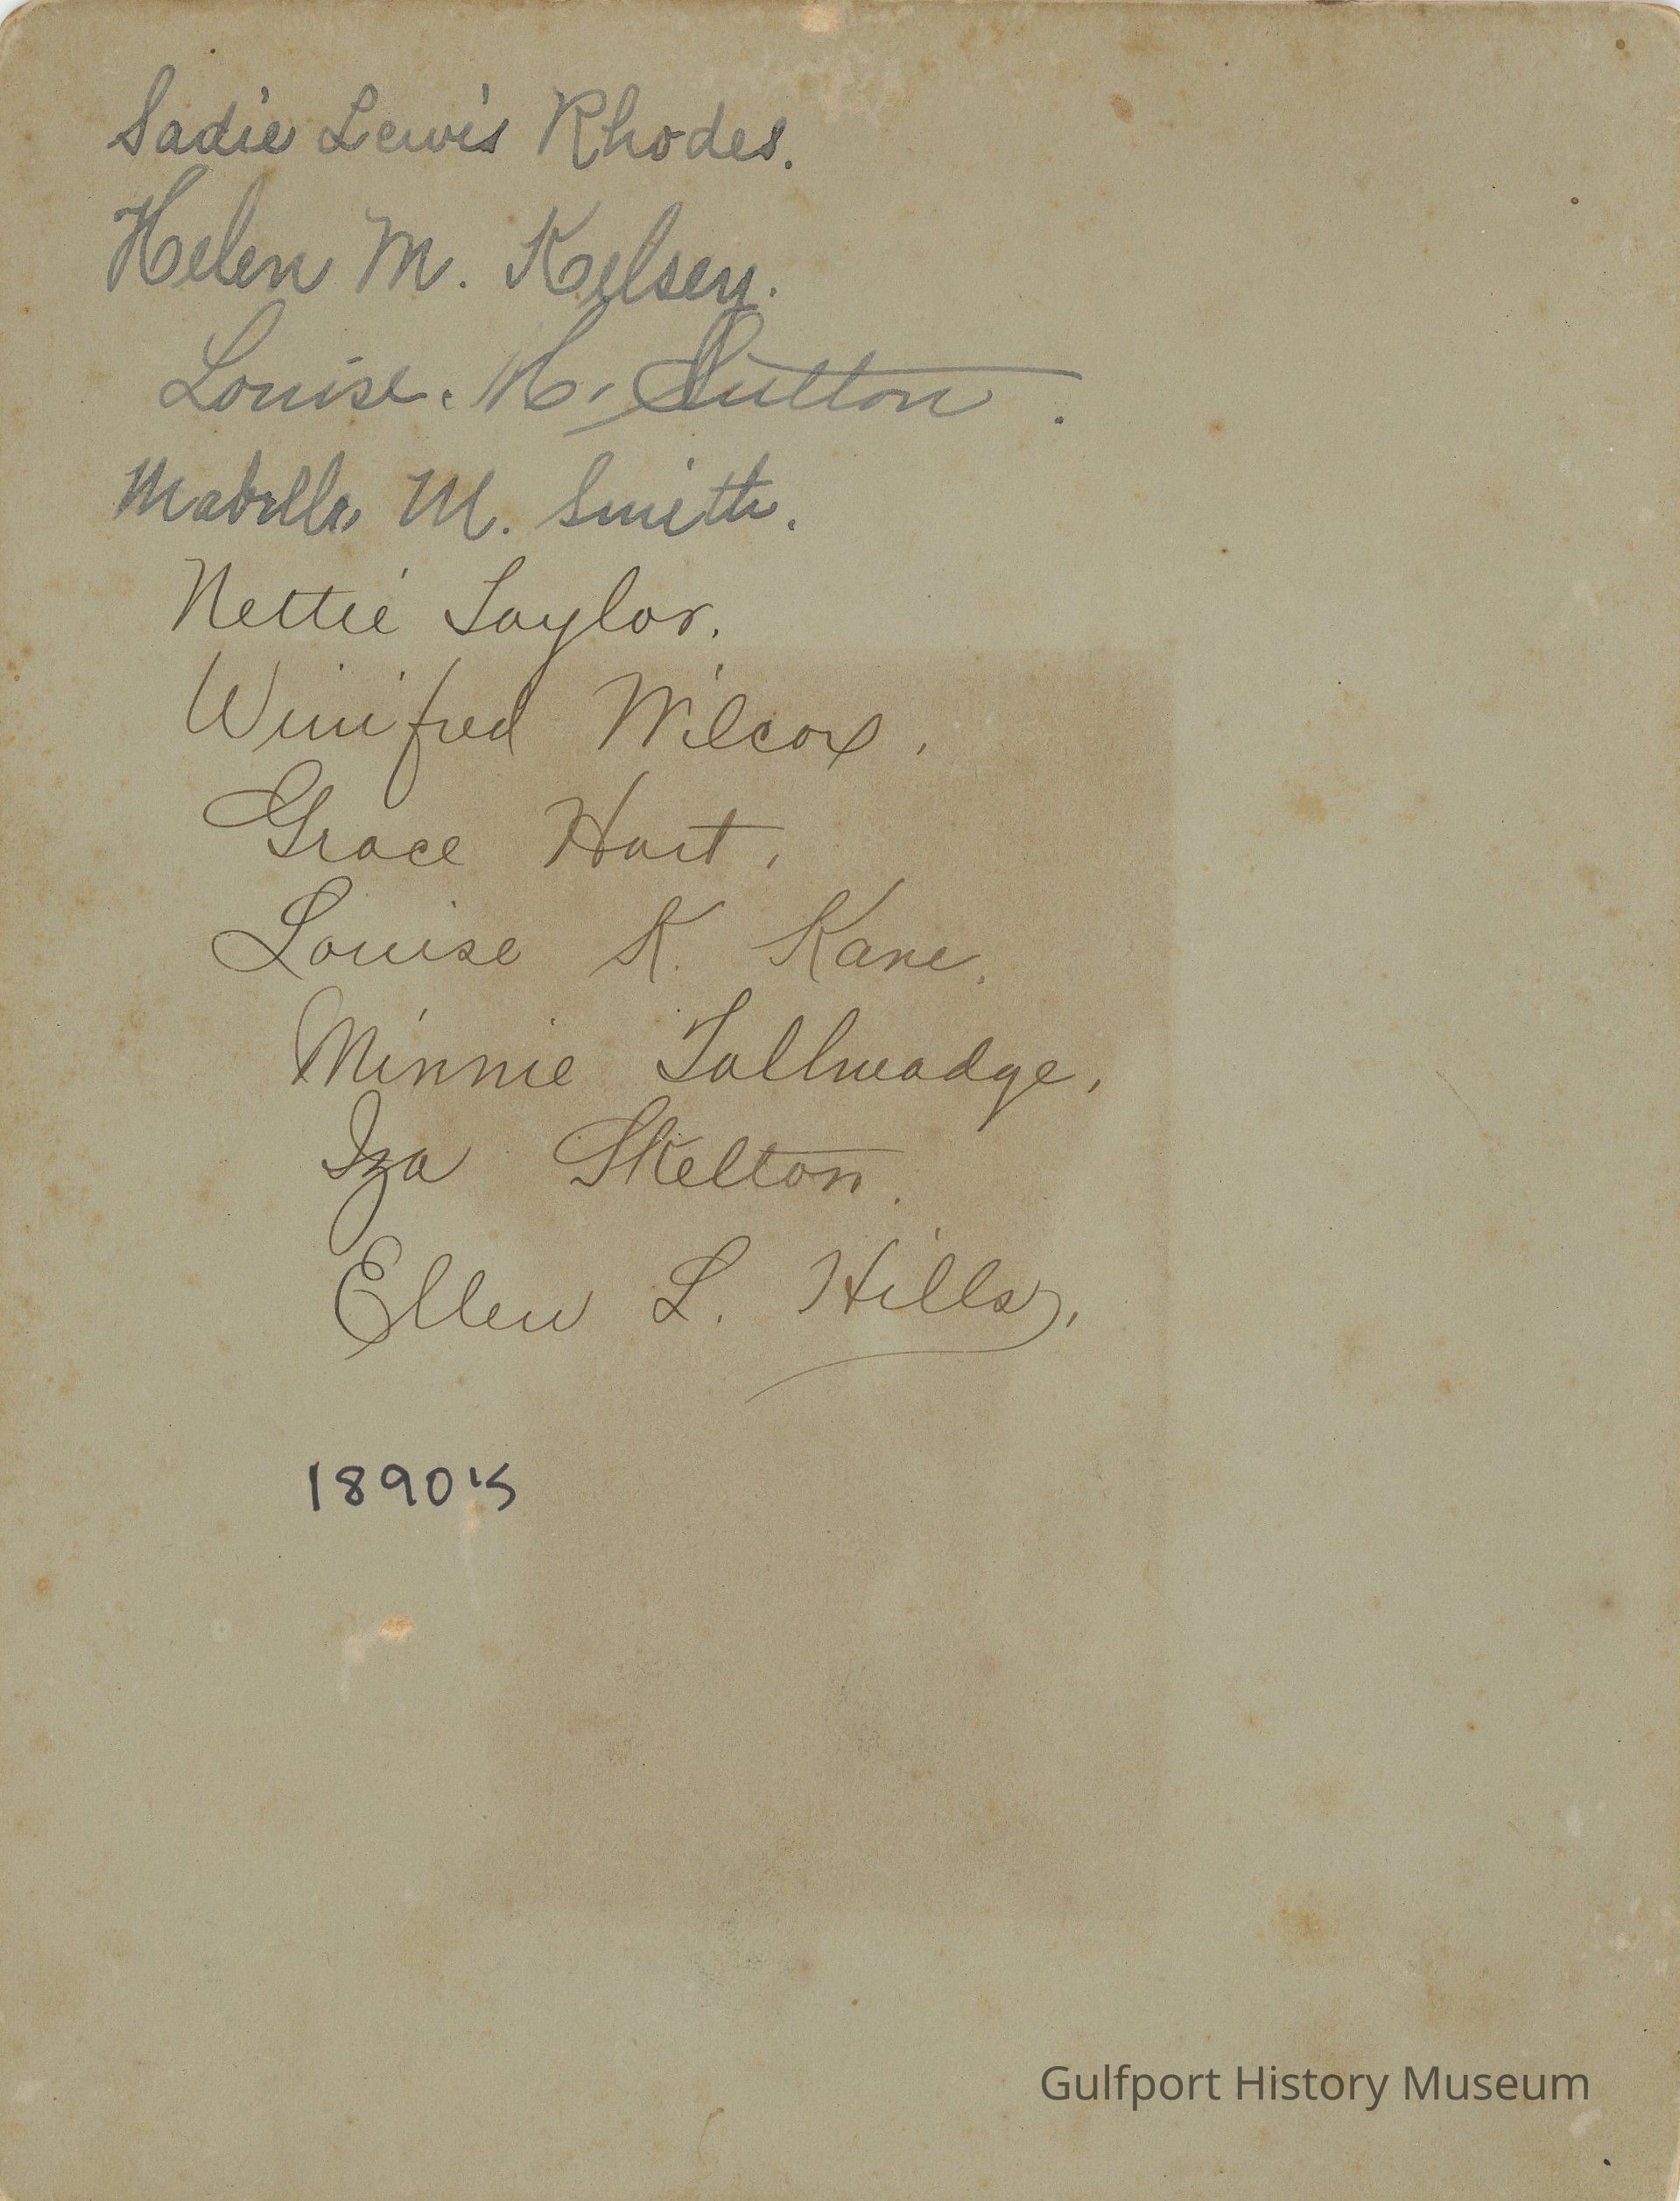 Sadie Lewis Rhodes.
Helen M. Kelsey.
Louise. H. Sutton.
Mabelle M. Smith.
Nettie Taylor.
Winifred Wilcox.
Grace Hart.
Louise K. Kane.
Minnie Tallmadge.
Iza Skelton.
Ellen L. Hills.
1890's
Gulfport History Museum